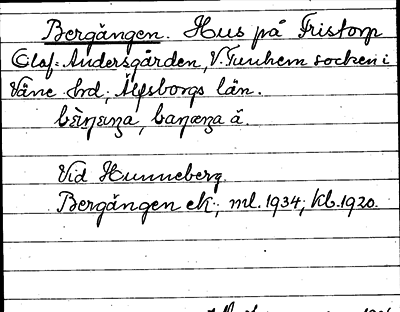 Bergängen. Hus på Fristorp
Olof-Andersgården, V. Tunhem socken i
Väne hd, Älfsborgs län.
Vid Hunneberg.
Bergängen ek; ml. 1934; kb. 1920.